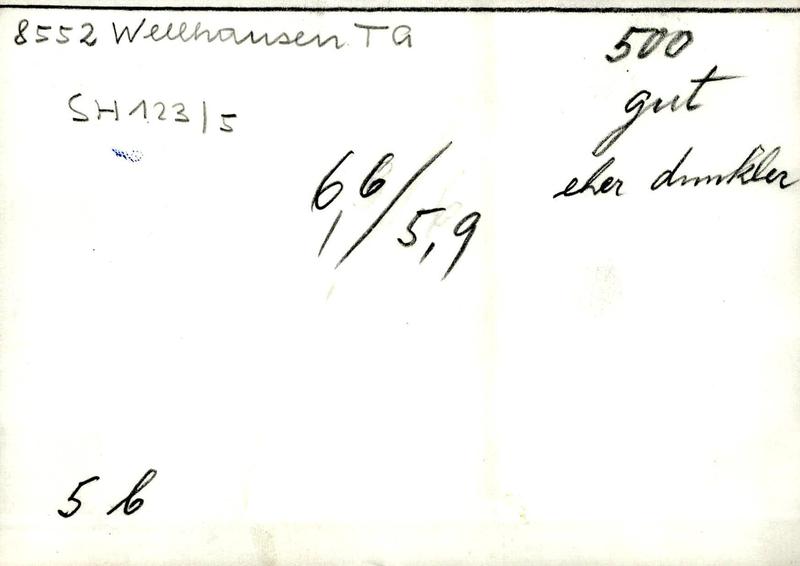 8552 Wellhausen TG
500
gut
eher dunkler
SH 123/5
6,6/5,9
5 b